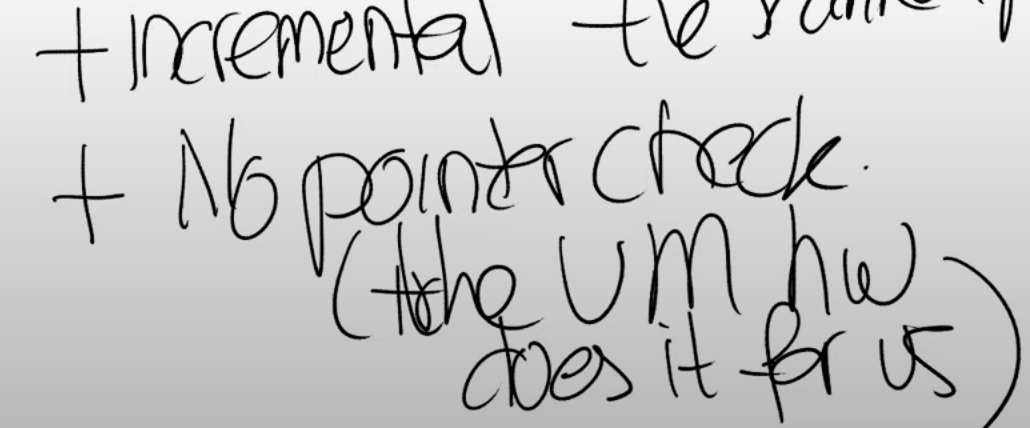 + Incremental
+ No pointer check.
(the VM hw
does it for us)